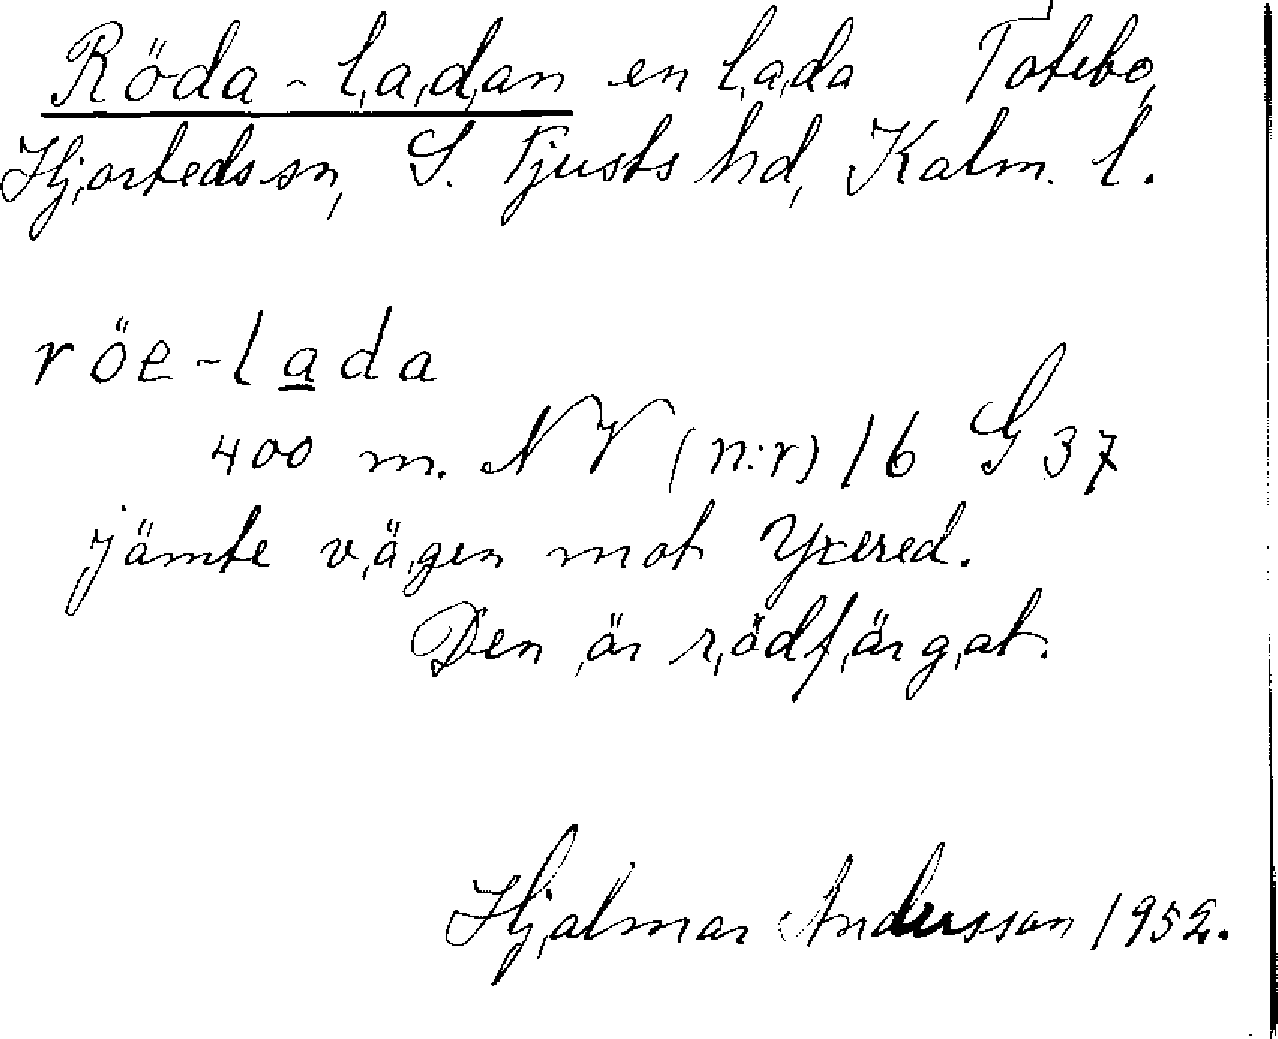 Röda-ladan en lada Totebo,
Hjorteds sn, S. Tjusts hd, Kalm. l.
röe-lada
400 m. NV (n:r) 16 G 37
jämte vägen mot Yxered.
Den är rödfärgat.
Hjalmar Andersson 1952.